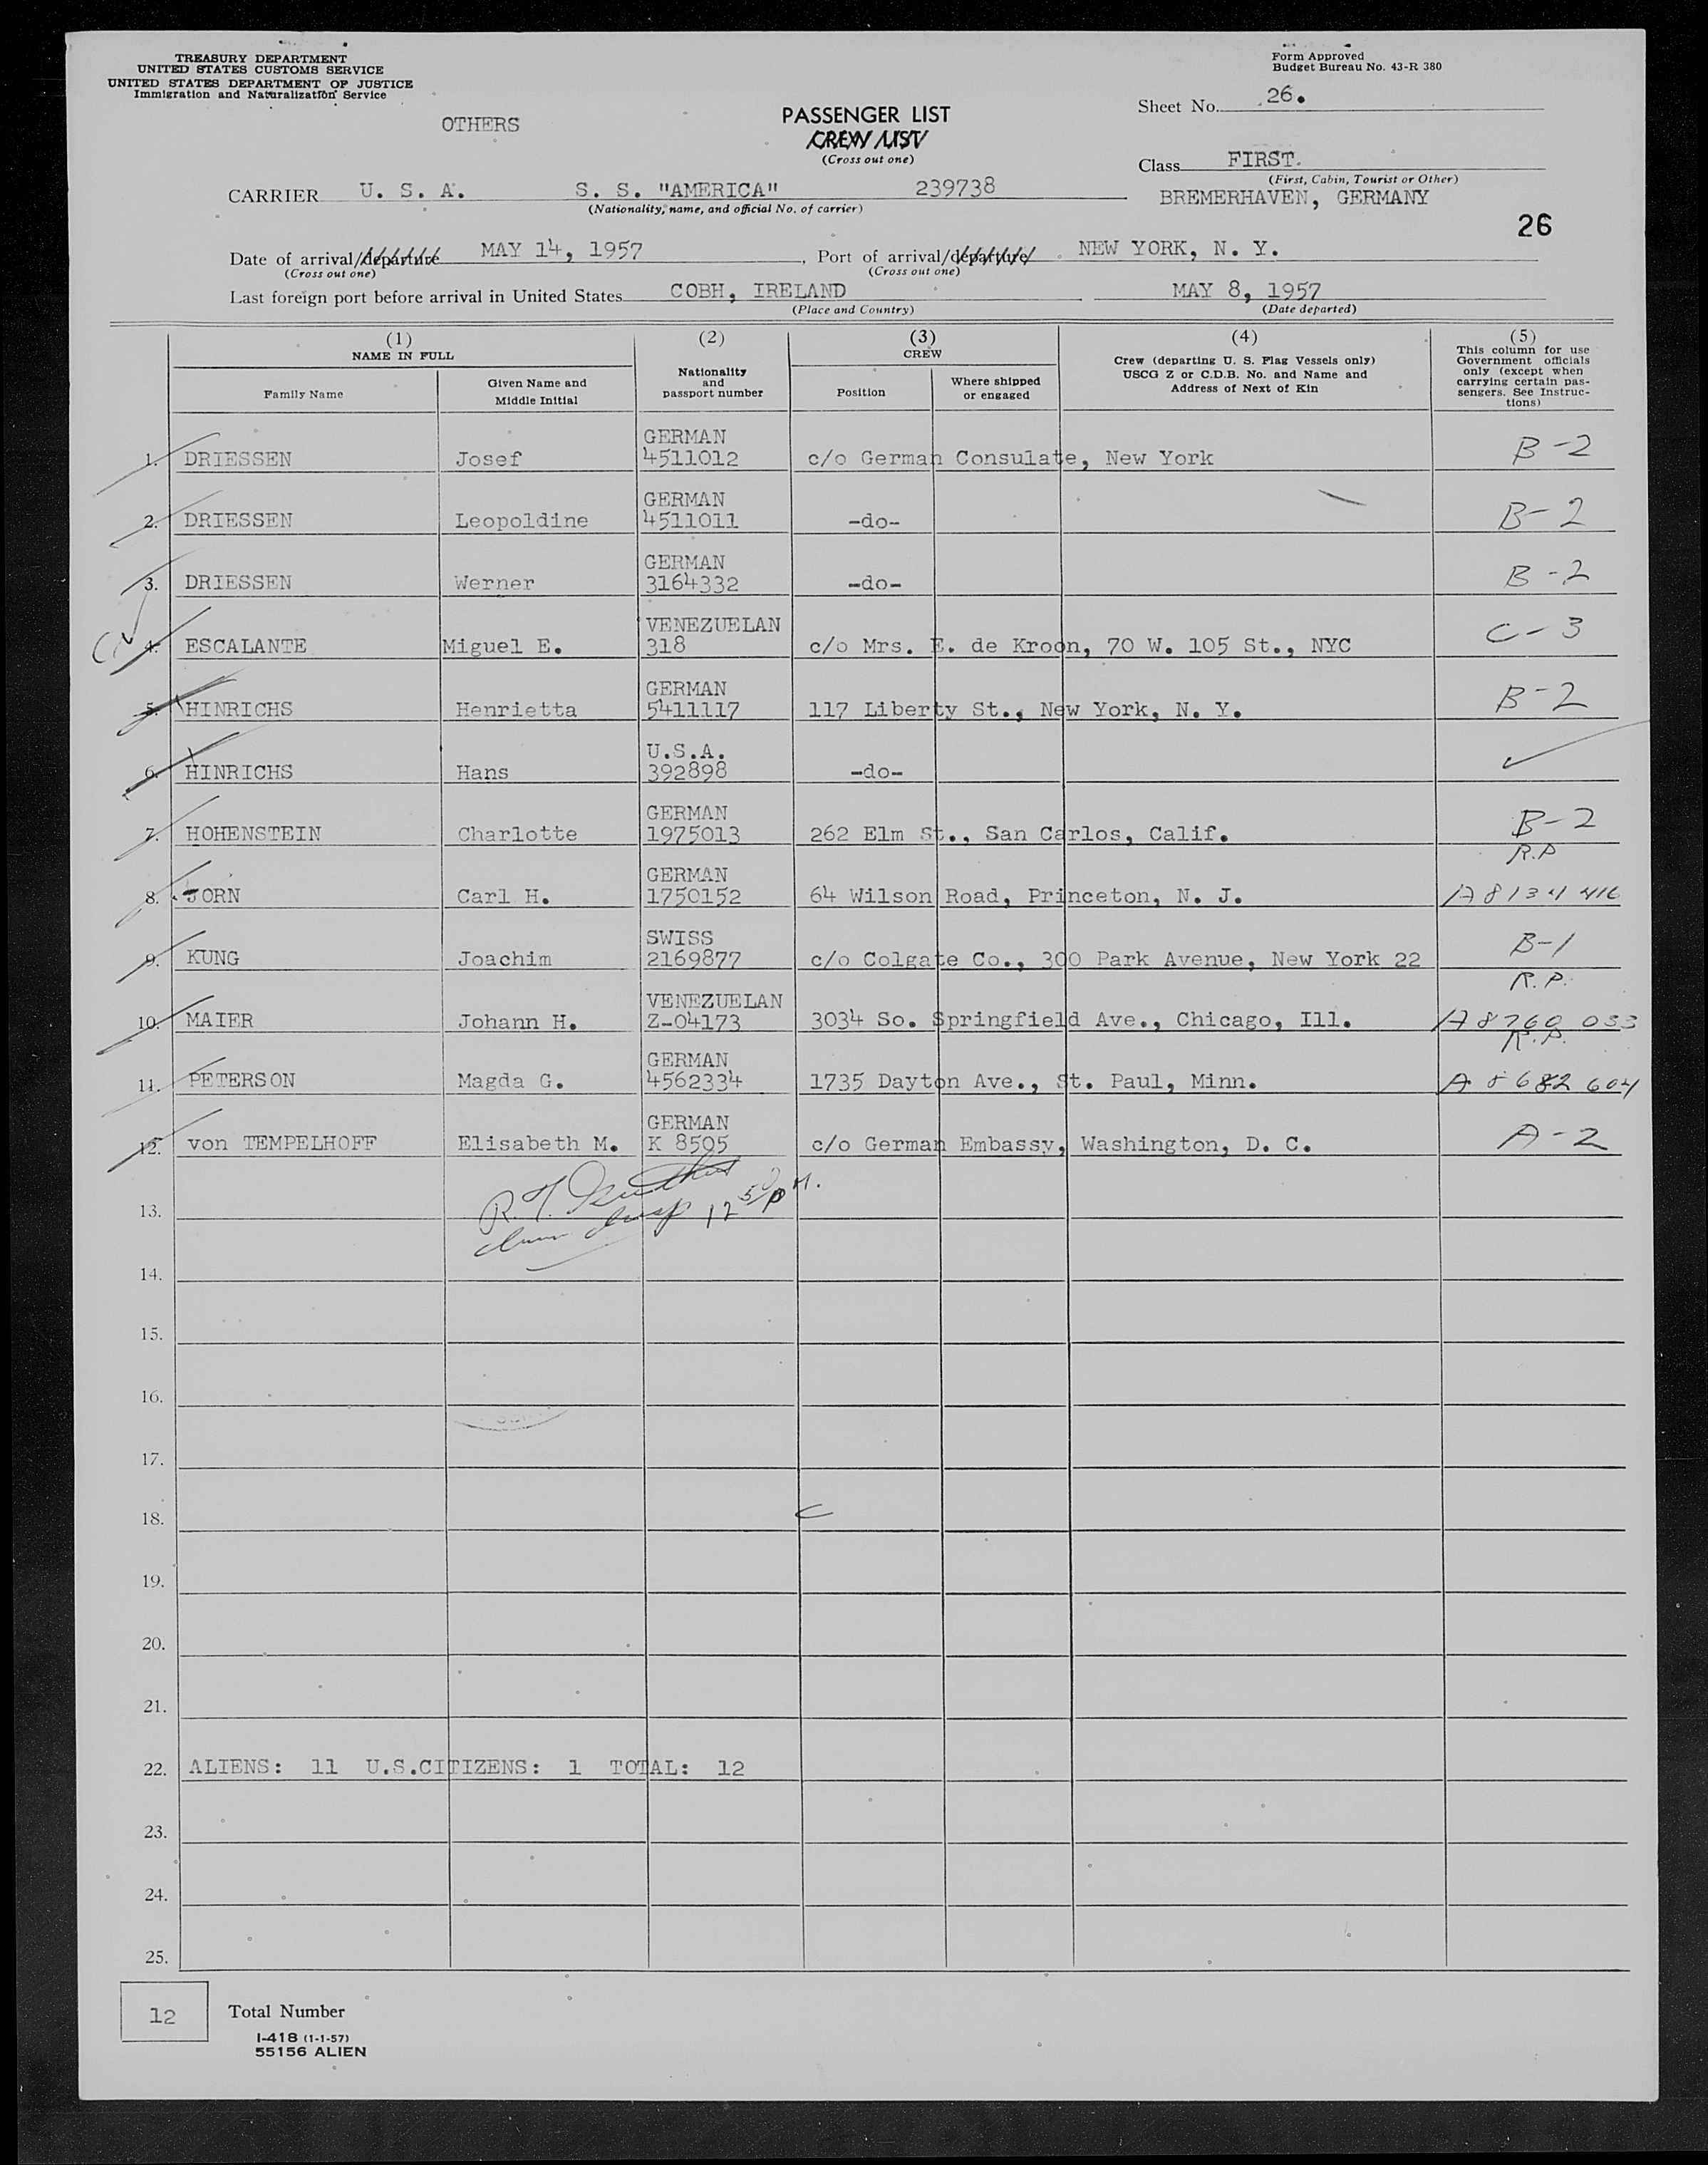 TREASURY DEPARTMENT
UNITED STATES CUSTOMS SERVICE
UNITED STATES DEPARTMENT OF JUSTICE
Immigration and Naturalization Service
Form Approved
Budget Bureau No. 43-R 380
OTHERS
PASSENGER LIST
CREW LIST
(Cross out one)
Sheet No. 26.
Class FIRST.
(First, Cabin, Tourist or Other)
CARRIER U. S. A. S. S. "AMERICA" 239738
(Nationality, name, and official No. of carrier)
BREMERHAVEN, GERMANY
26
Date of arrival/departure MAY 14, 1957, Port of arrival/departure NEW YORK, N. Y.
(Cross out one) (Cross out one)
Last foreign port before arrival in United States COBH, IRELAND MAY 8, 1957
(Place and Country) (Date departed)
(1)
NAME IN FULL
Family Name
Given Name and
Middle Initial
(2)
Nationality
and
passport number
(3)
CREW
Position
Where shipped
or engaged
(4)
Crew (departing U. S. Flag Vessels only)
USCG Z or C.D.B. No. and Name and
Address of Next of Kin
(5)
This column for use
Government officials
only (except when
carrying certain pas-
sengers. See Instruc-
tions)
GERMAN
1. DRIESSEN Josef 4511012 c/o German Consulate, New York B-2
GERMAN
2. DRIESSEN Leopoldine 4511011 -do- B-2
GERMAN
3. DRIESSEN Werner 3164332 -do- B-2
VENEZUELAN
4. ESCALANTE Miguel E. 318 c/o Mrs. E. de Kroon, 70 W. 105 St., NYC C-3
GERMAN
5. HINRICHS Henrietta 5411117 117 Liberty St., New York, N. Y. B-2
U.S.A.
6. HINRICHS Hans 392898 -do-
GERMAN
7. HOHENSTEIN Charlotte 1975013 262 Elm St., San Carlos, Calif. B-2
GERMAN R.P
8. JORN Carl H. 1750152 64 Wilson Road, Princeton, N. J. A8134416
SWISS
9. KUNG Joachim 2169877 c/o Colgate Co., 300 Park Avenue, New York 22 B-1
VENEZUELAN R.P.
10. MAIER Johann H. Z-04173 3034 So. Springfield Ave., Chicago, Ill. A8760 033
GERMAN R.P.
11. PETERSON Magda G. 4562334 1735 Dayton Ave., St. Paul, Minn. A 8 682 604
GERMAN
12. von TEMPELHOFF Elisabeth M. K 8505 c/o German Embassy, Washington, D. C. A-2
13.
14.
15.
16.
17.
18.
19.
20.
21.
22. ALIENS: 11 U.S.CITIZENS: 1 TOTAL: 12
23.
24.
25.
12 Total Number
I-418 (1-1-57)
55156 ALIEN